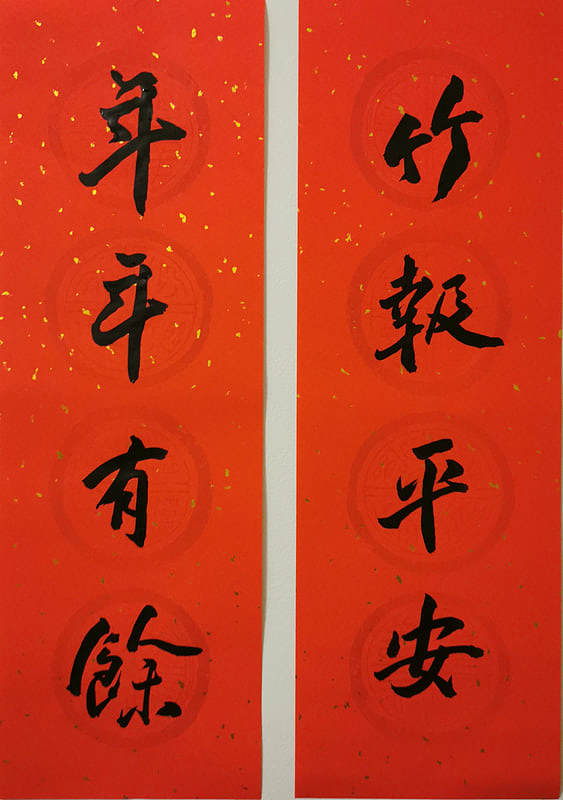 竹報平安
年年有餘